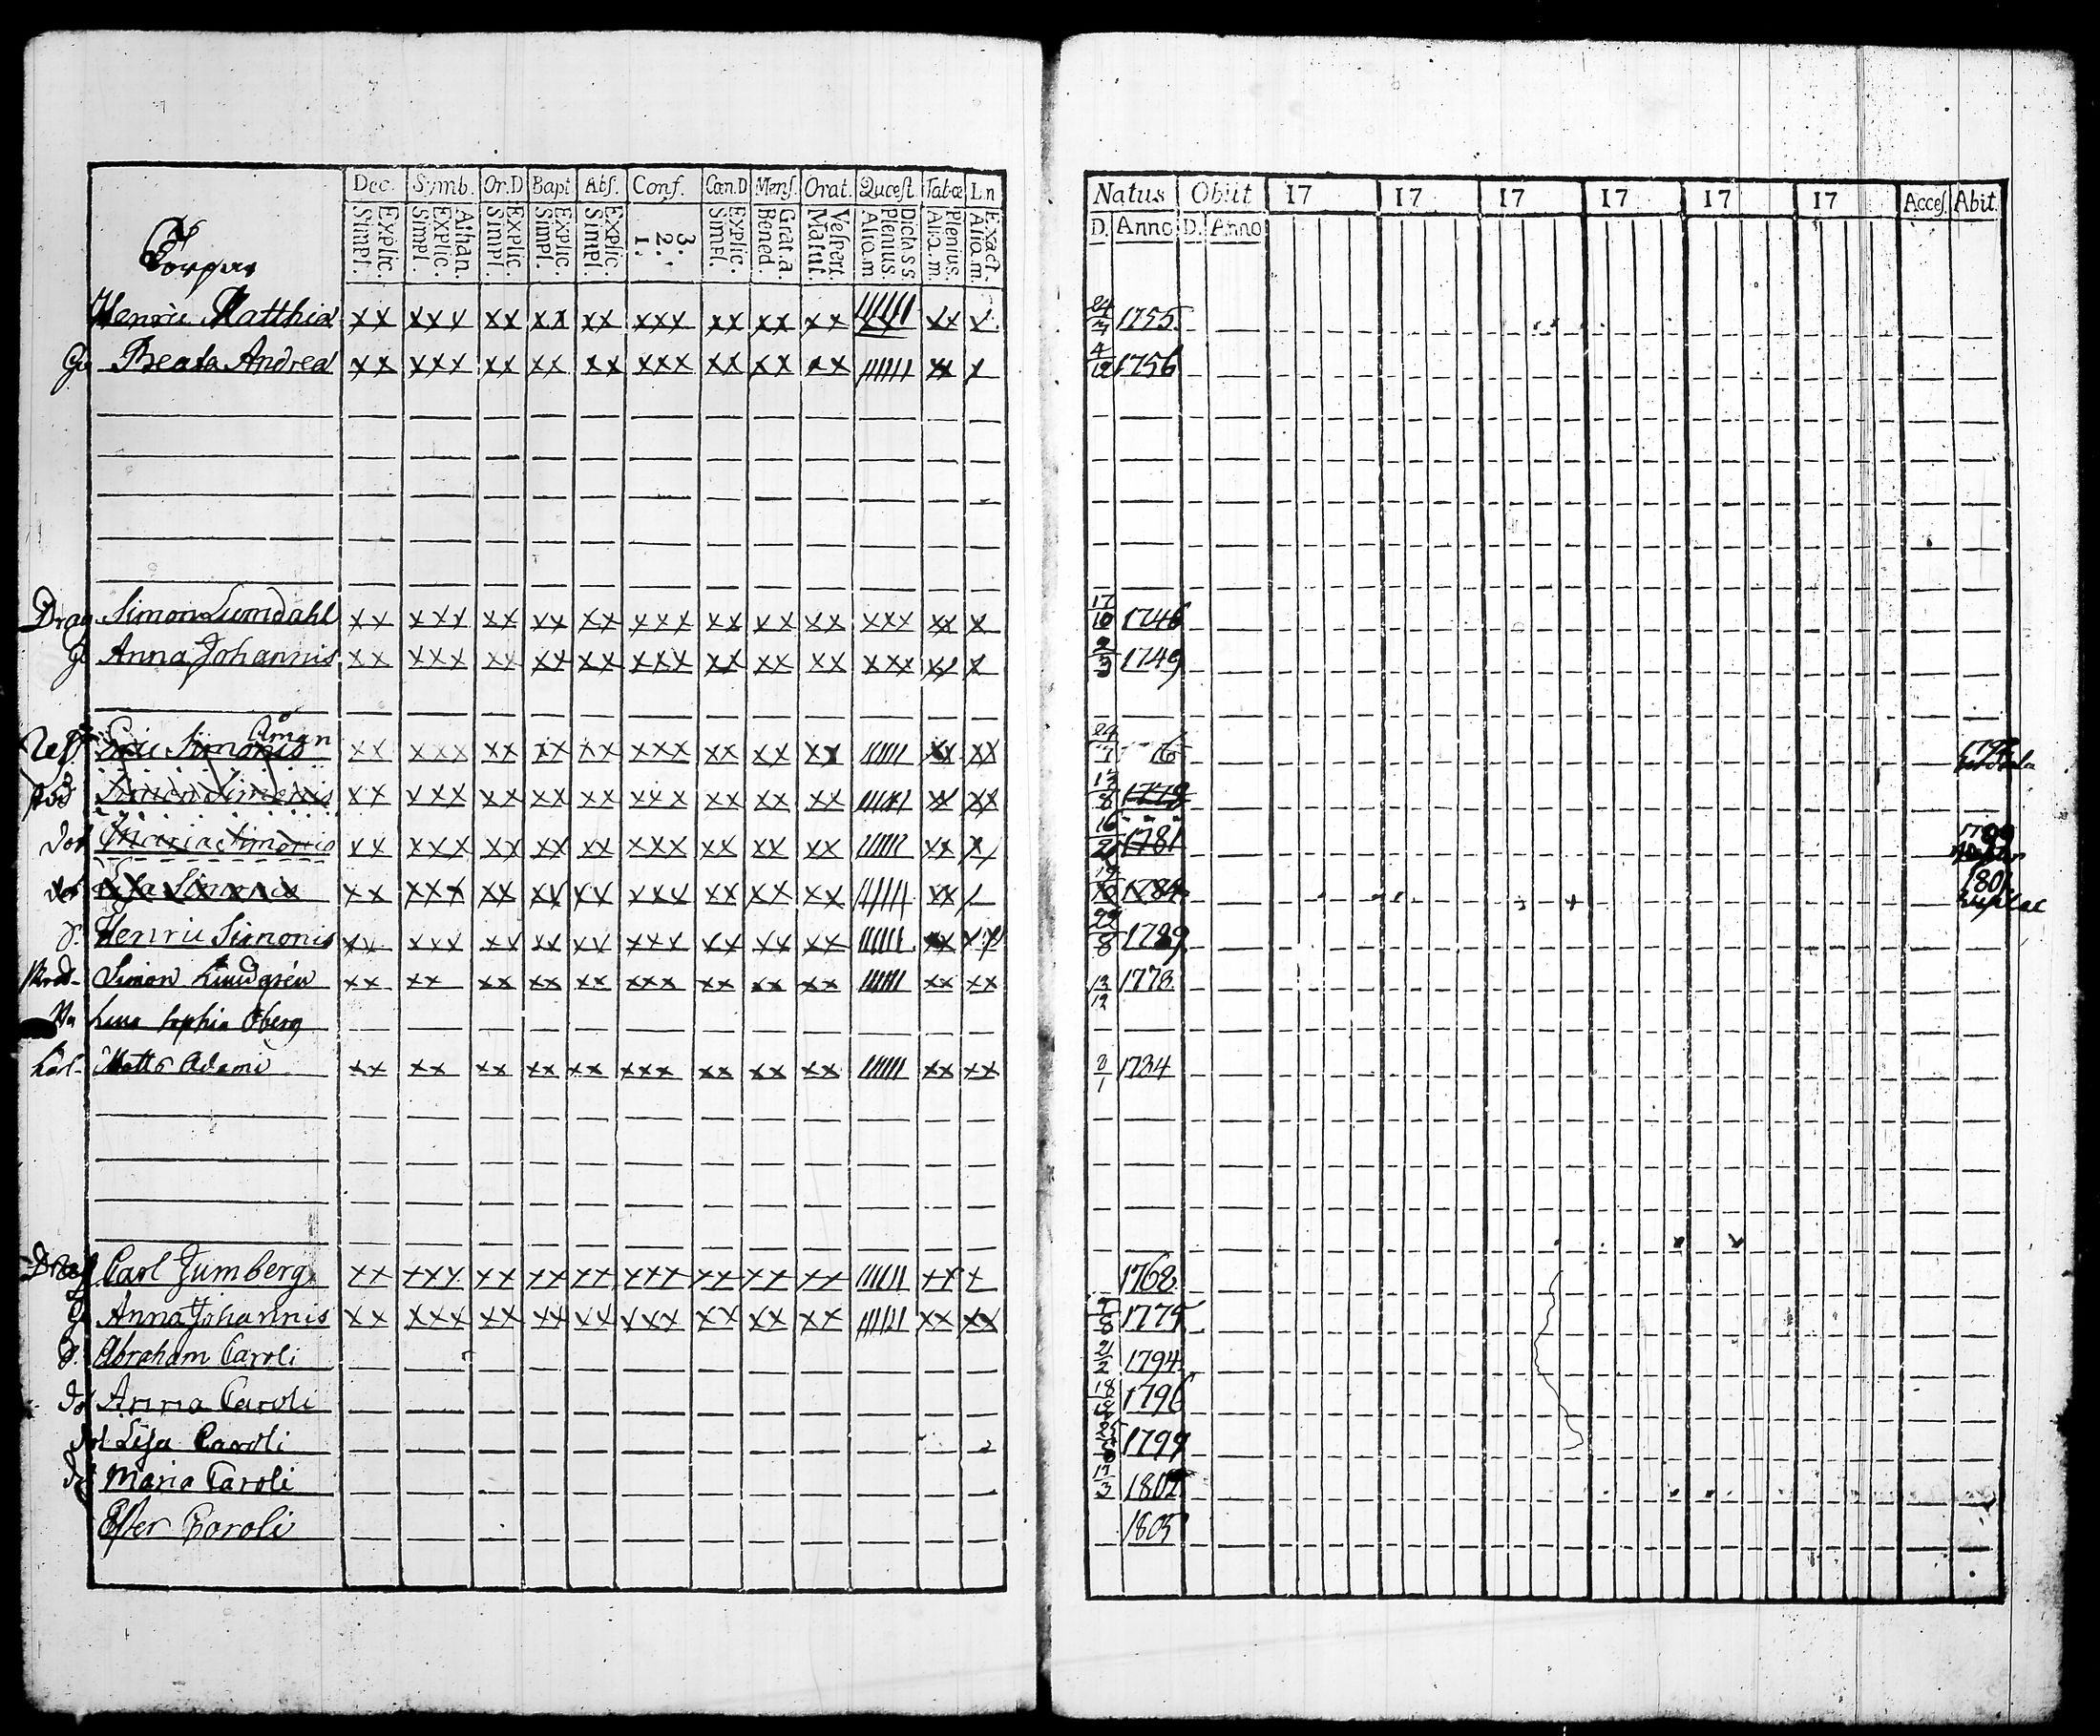 Dec. Symb. Or.D Bapt Abs. Conf. Cœn.D Mens. Orat. Quæst Tabæ Ln
Explic. Simpl. Athan. Explic. Simpl. Explic. Simpl. Explic. Simpl. Explic. Simpl. 3. 2. 1. Explic. Simpl. Grat.a. Bened. Vespert. Matut. Dicta ss. Plenius. Aliq.m Plenius. Aliq.m. Exact. Aliq.m.
Natus Obiit 17 17 17 17 17 17 Acces. Abit.
D. Anno D. Anno
Torpar
Henric Matthiæ xx xxx xx xx xx xxx xx xx xx xx x 1755
Beata Andreæ xx xxx xx xx xx xxx xx xx xx xx x 4/12 1756
Drag Simon Lumdahl xx xxx xx xx xx xxx xx xx xx xxx xx x 17/10 1746
Anna Johannis xx xxx xx xx xx xxx xx xx xx xxx xx x 1749
Åman
Eric Simonis xx xxx xx xx xx xxx xx xx xx xx xx
Simon Simonis xx xxx xx xx xx xxx xx xx xx xx xx 13/8 1778
dot Maria Simonis xx xxx xx xx xx xxx xx xx xx xx x 1781 1799
Lisa Simonis xx xxx xx xx xx xxx xx xx xx xx 1784 1801
S. Henric Simonis xx xxx xx xx xx xxx xx xx xx xx xx 1789
Simon Lundgrén xx xx xx xx xx xxx xx xx xx xx xx 13/12 1778
Lena Sophia Öberg
Matts Adami xx xx xx xx xx xxx xx xx xx xx xx 1734
Drag Carl Jumberg xx xxx xx xx xx xxx xx xx xx xx x 1768
Anna Johannis xx xxx xx xx xx xxx xx xx xx xx xx 1775
S. Abraham Caroli 21/2 1794
dot Anna Caroli 1796
dot Lisa Caroli 1799
dot Maria Caroli 17/3 1802
Ester Caroli 1805